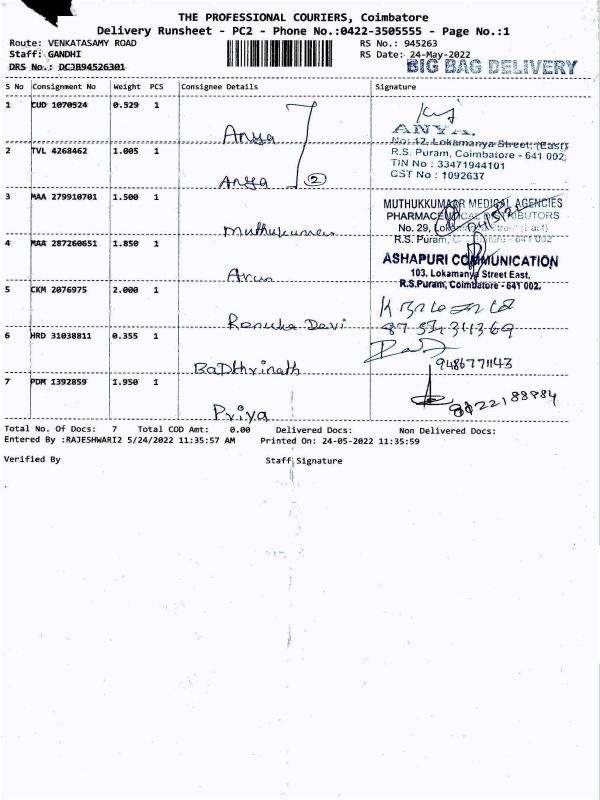 THE PROFESSIONAL COURIERS, Coimbatore
Delivery Runsheet - PC2 - Phone No.:0422-3505555 - Page No.:1
Route: VENKATASAMY ROAD
RS No.: 945263
Staff: GANDHI
RS Date: 24-May-2022
DRS No.: DCJB94526301
BIG BAG DELIVERY
S No Consignment No Weight PCS Consignee Details Signature
1 CUD 1070524 0.529 1 Anya
ANYA.
No: 12, Lokamanya Street, (East)
R.S. Puram, Coimbatore - 641 002,
TIN No : 33471944101
CST No : 1092637
2 TVL 4268462 1.005 1 Anya 2
3 MAA 279910701 1.500 1 Muthukumar
MUTHUKKUMAR MEDICAL AGENCIES
PHARMACEUTICAL DISTRIBUTORS
No. 29, Lokamanya Street (East)
R.S. Puram, Coimbatore - 641 002
4 MAA 287260651 1.850 1 Arun
ASHAPURI COMMUNICATION
103, Lokamanya Street East,
R.S.Puram, Coimbatore - 641 002.
5 CKM 2076975 2.000 1 Renuka Devi
6 HRD 31038811 0.355 1 BaDthrinath
9486771143
7 PDM 1392859 1.950 1 Priya
Total No. Of Docs: 7 Total COD Amt: 0.00 Delivered Docs: Non Delivered Docs:
Entered By :RAJESHWARI2 5/24/2022 11:35:57 AM Printed On: 24-05-2022 11:35:59
Verified By Staff Signature